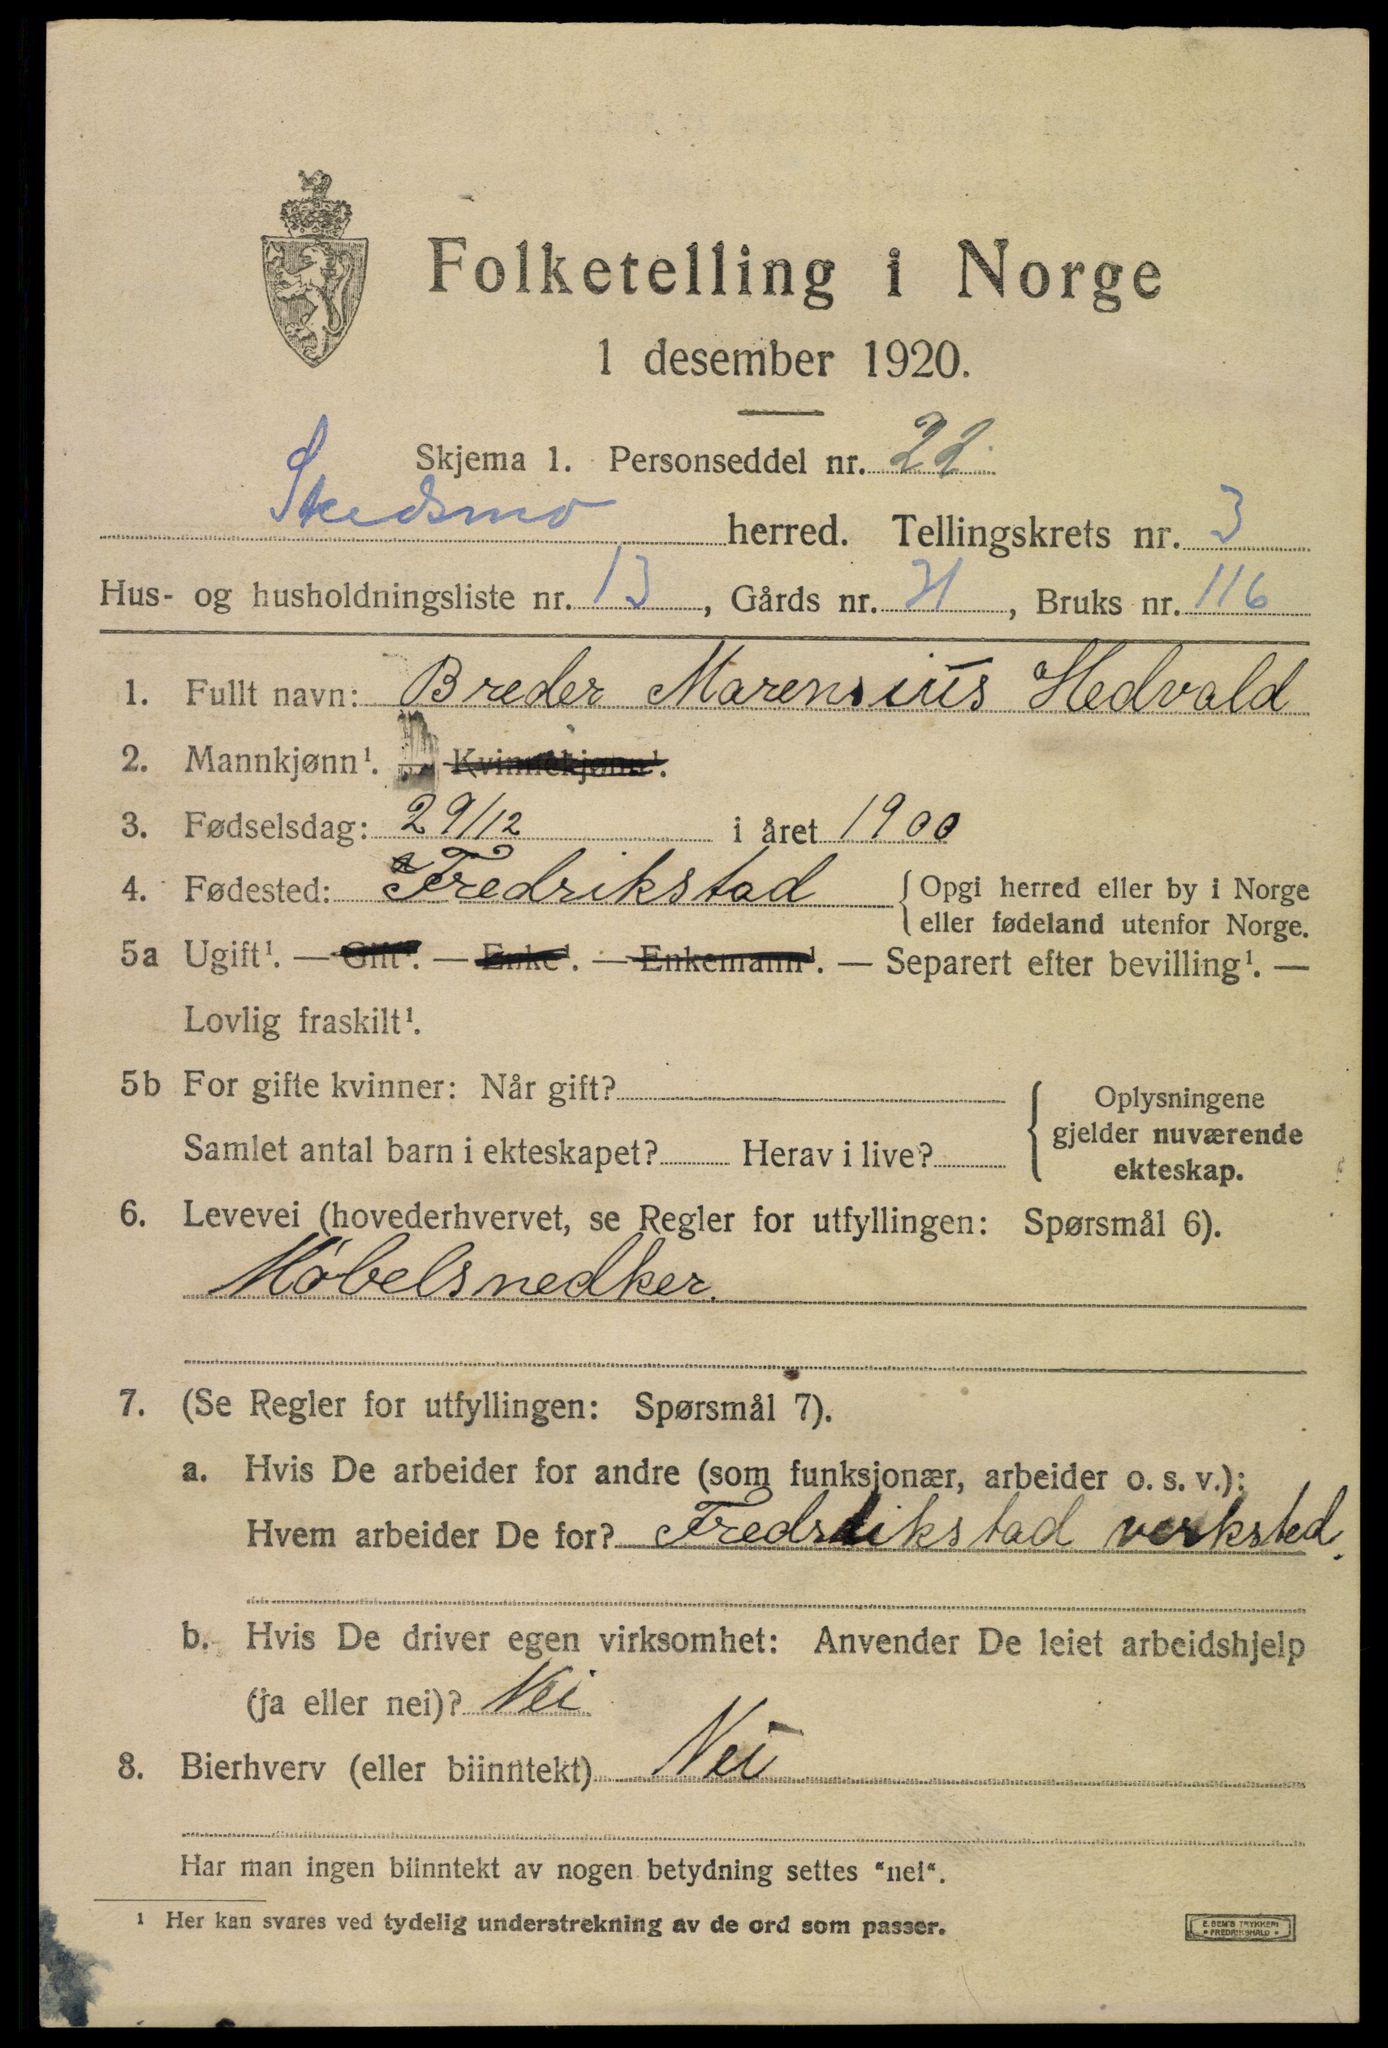 Folketelling i Norge
1 desember 1920.
Skjema 1. Personseddel nr. 22
Skedsmo herred. Tellingskrets nr. 3
Hus- og husholdningsliste nr. 13, Gårds nr. 31, Bruks nr. 116
1. Fullt navn: Breder Marensius Hedvald
2. Mannkjønn¹. Kvinnekjønn¹.
3. Fødselsdag: 29/12 i året 1900
4. Fødested: Fredrikstad { Opgi herred eller by i Norge
eller fødeland utenfor Norge.
5a Ugift¹. — Gift¹. — Enke¹. — Enkemann¹. — Separert efter bevilling¹. —
Lovlig fraskilt¹.
5b For gifte kvinner: Når gift? { Oplysningene
gjelder nuværende
Samlet antal barn i ekteskapet? Herav i live?
ekteskap.
6. Levevei (hovederhvervet, se Regler for utfyllingen: Spørsmål 6).
Møbelsnedker.
7. (Se Regler for utfyllingen: Spørsmål 7).
a. Hvis De arbeider for andre (som funksjonær, arbeider o. s. v.):
Hvem arbeider De for? Fredrikstad verksted.
b. Hvis De driver egen virksomhet: Anvender De leiet arbeidshjelp
(ja eller nei)? Nei
8. Bierhverv (eller biinntekt) Nei
Har man ingen biinntekt av nogen betydning settes "nei".
¹ Her kan svares ved tydelig understrekning av de ord som passer.
E. SEM'S TRYKKERI
* FREDRIKSHALD *